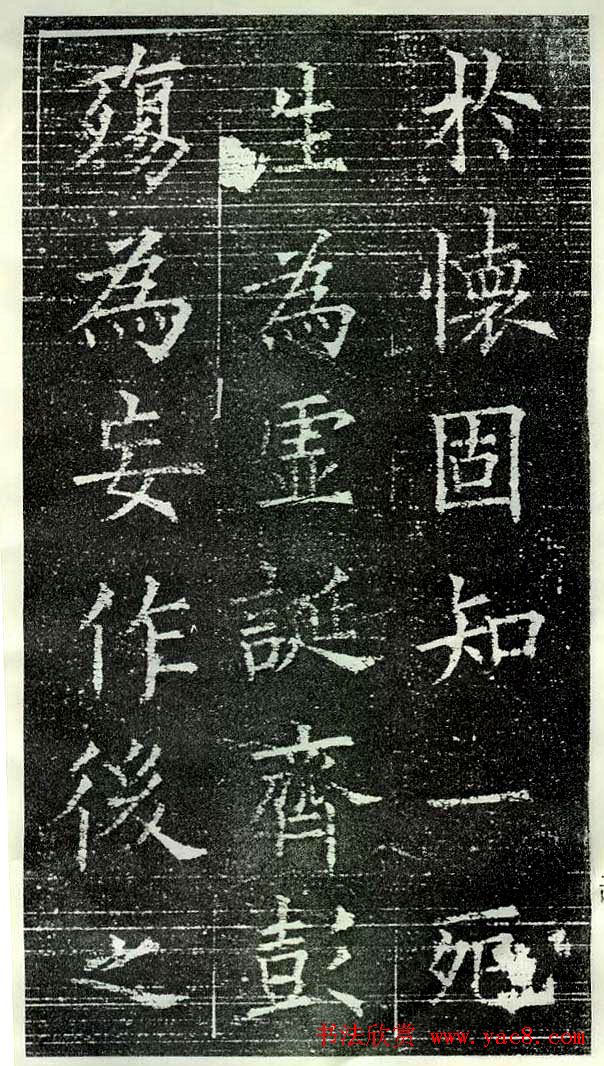 於懷固知一死
生為虛誕齊彭
殤為妄作後之
书法欣赏 www.yac8.com